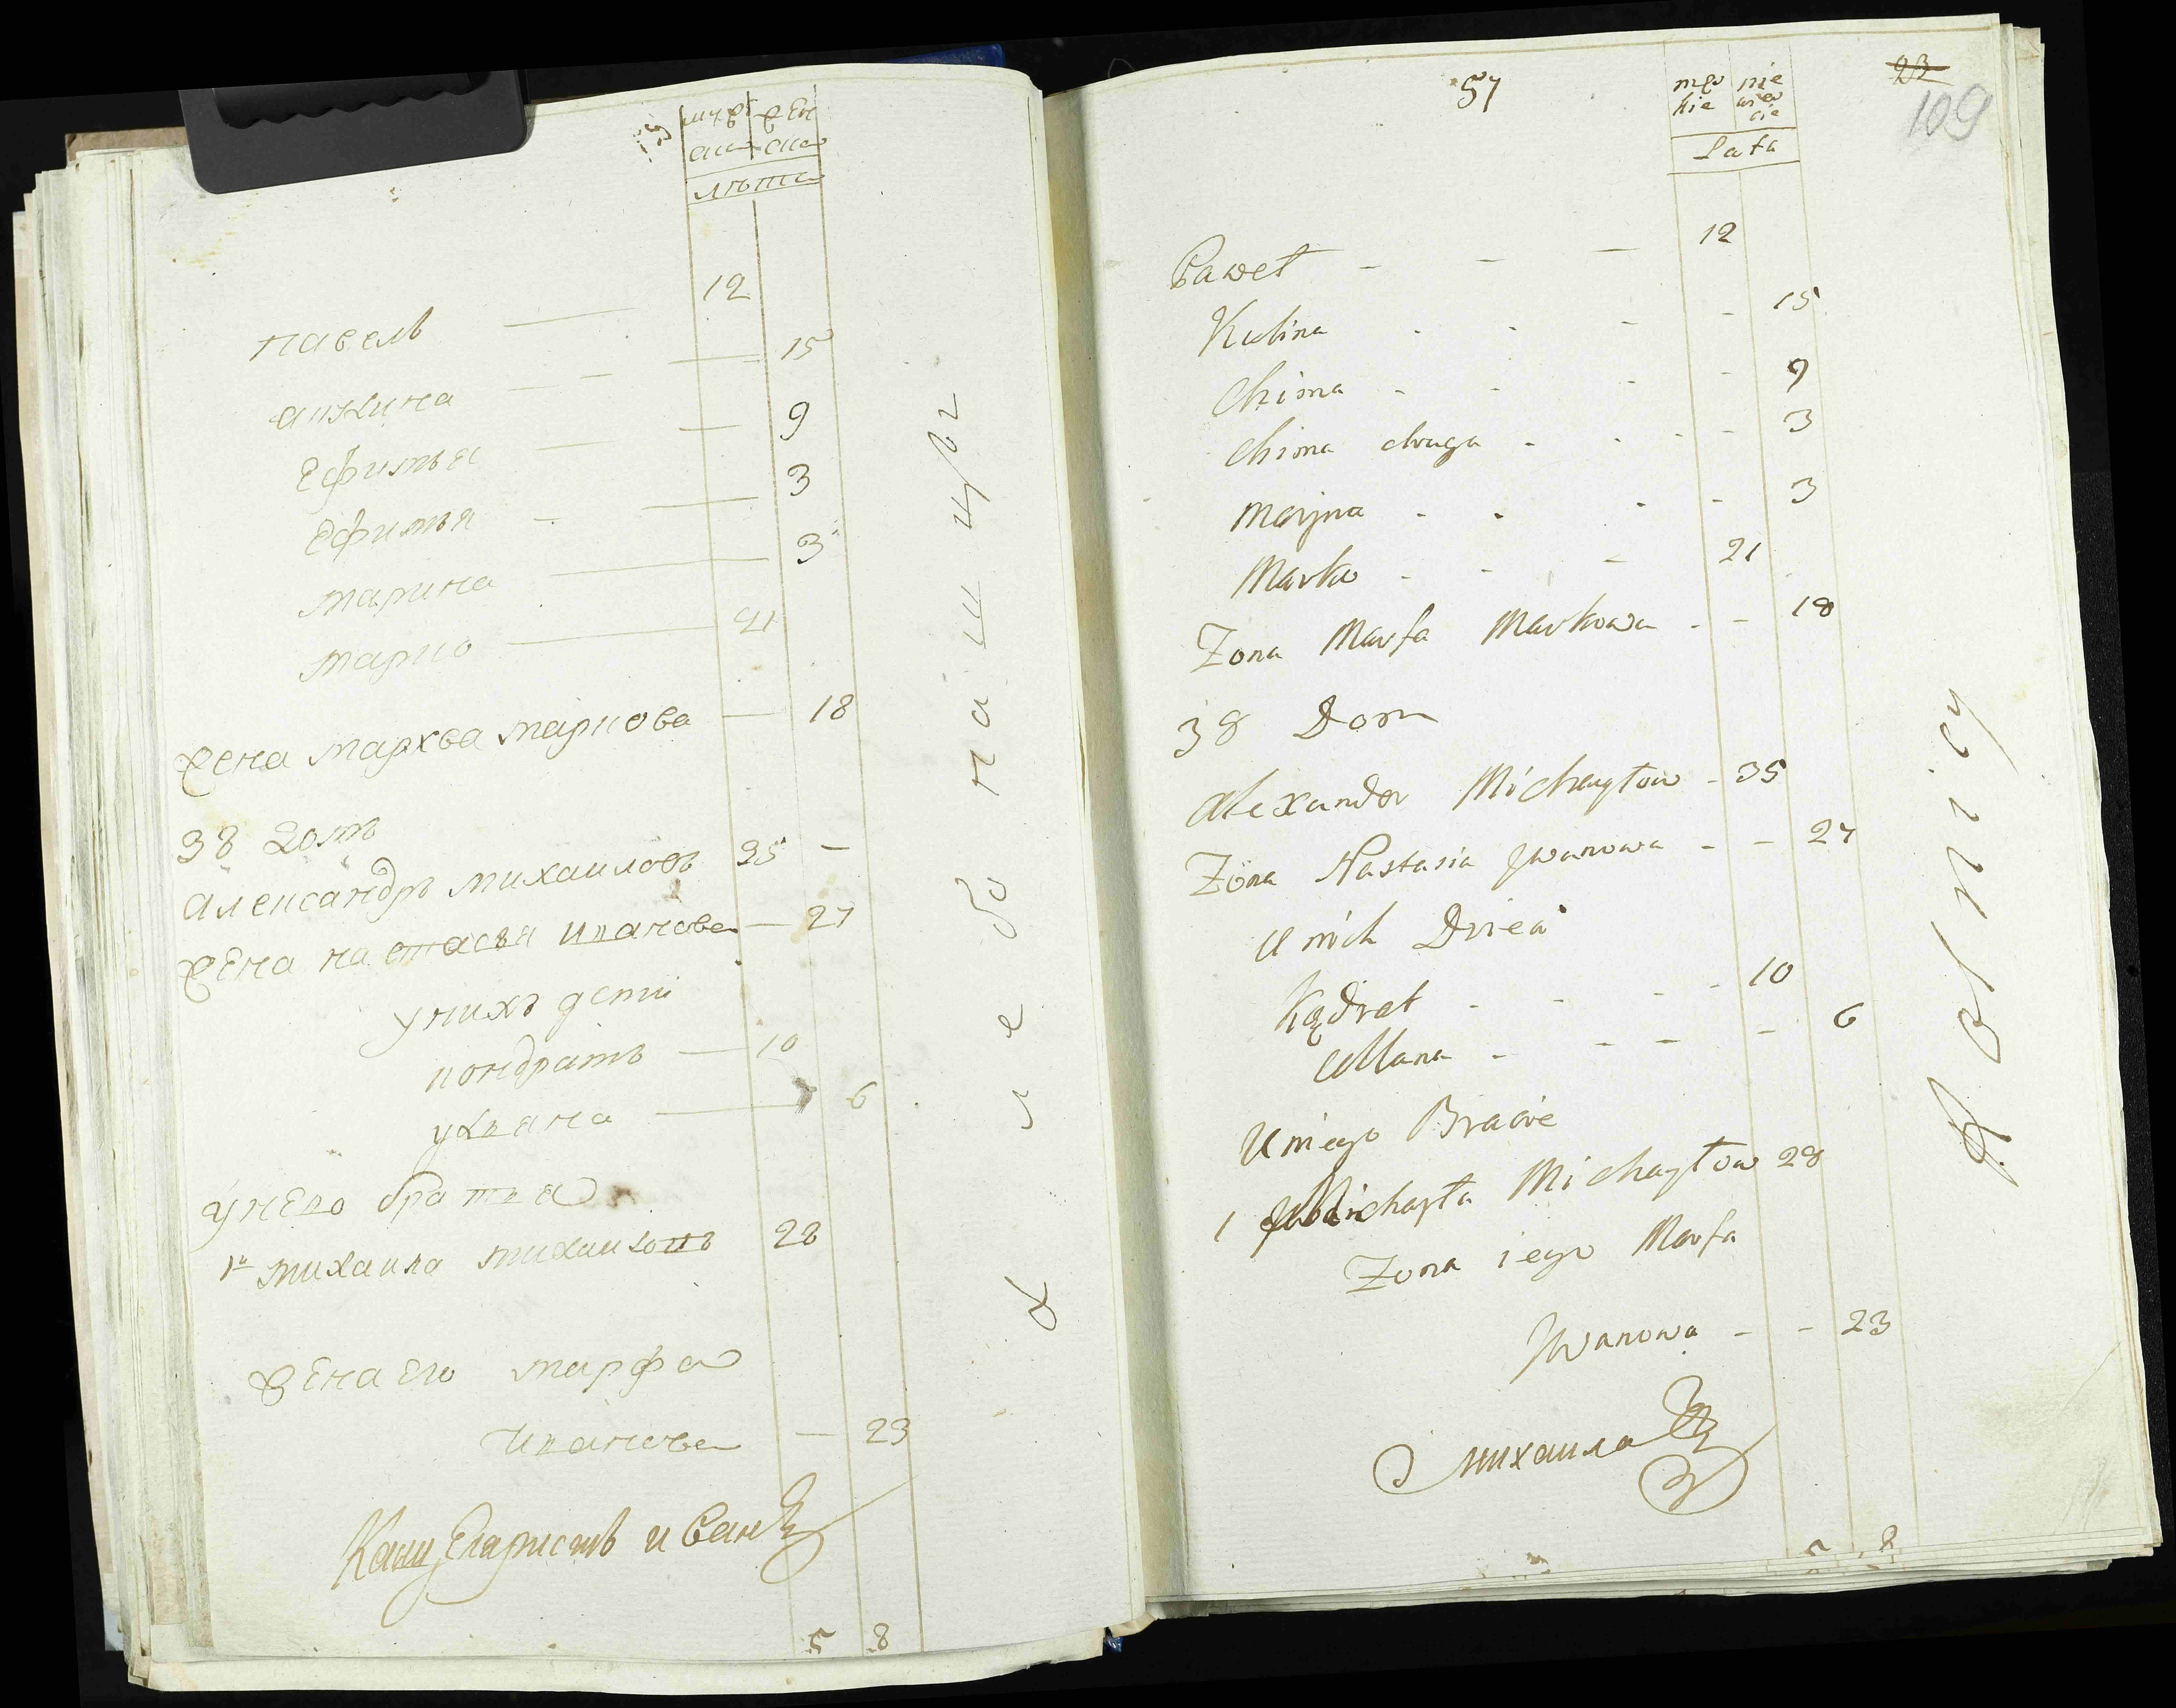 мужс женс
кие кие
лѣта
павелъ — 12
акулина — 15
Ефимья — 9
Ефимья — 3
марина — 3
марко — 21
жена мархва маркова — 18
38 домъ
александръ михаиловъ 35 —
жена настасья иванова — 27
у нихъ дети
кондратъ — 10
ульяна — 6
у него братья
1й михаила михаиловъ 28
жена его марфа
иванова — 23
Канцеларистъ иванъ
5 8
57
męs nie
kie wieś
cie
Lata
23
109
Paweł - - - 12
Kulina - - - - 15
Chima - - - - 9
Chima druga - - - - 3
Maryna - - - - 3
Marko - - - 21
Zona Marfa Markowa - - 18
38 Dom
Alexander Michayłow - 35
Zona Nastasia Jwanowa - - 27
U nich Dzieci
Kądrat - - - - 10
Ullana - - - - 6
U niego Bracie
1 Michayła Michayłow 28
Zona iego Marfa
Jwanowa - - 23
михаила
5 8